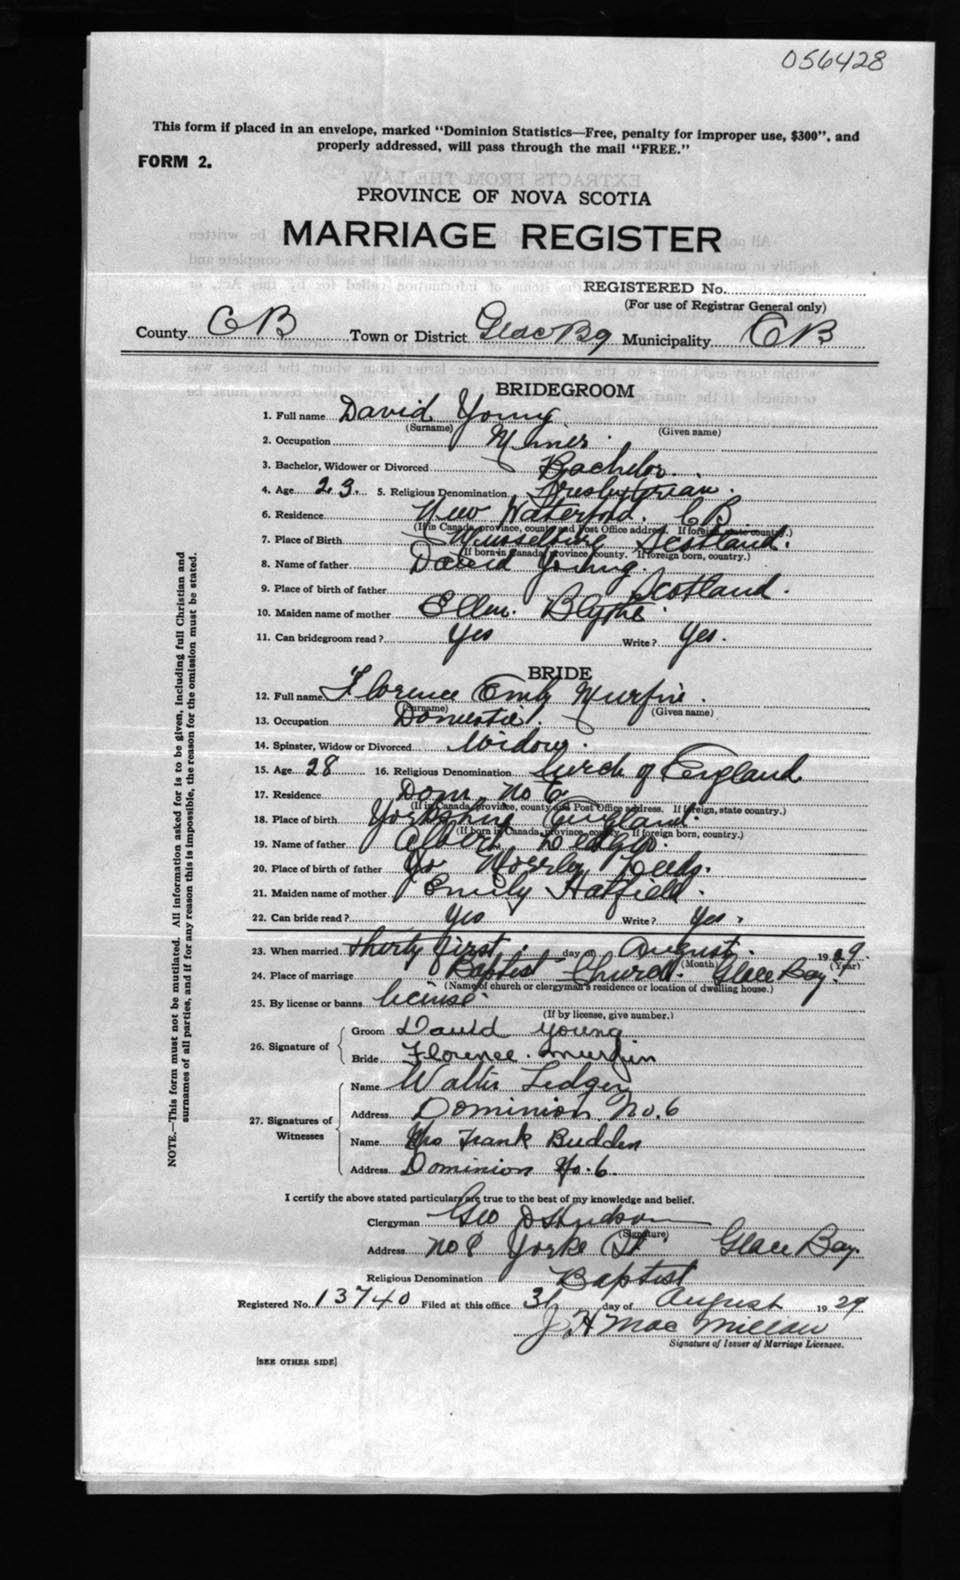 056428
This form if placed in an envelope, marked "Dominion Statistics—Free, penalty for improper use, $300", and
properly addressed, will pass through the mail "FREE."
FORM 2.
PROVINCE OF NOVA SCOTIA
MARRIAGE REGISTER
REGISTERED No.
(For use of Registrar General only)
County CB Town or District Glace Bay Municipality CB
BRIDEGROOM
1. Full name David Young
(Surname) (Given name)
2. Occupation Miner.
3. Bachelor, Widower or Divorced Bachelor.
4. Age 23. 5. Religious Denomination Presbyterian.
6. Residence New Waterford. CB
(If in Canada, province, county and Post Office address. If foreign, state country.)
7. Place of Birth Musselburg Scotland.
(If born in Canada, province, county. If foreign born, country.)
8. Name of father David Young.
9. Place of birth of father Scotland.
10. Maiden name of mother Ellen. Blythe.
11. Can bridegroom read? Yes Write? Yes.
BRIDE
12. Full name Florence Emily Murfin.
(Surname) (Given name)
13. Occupation Domestic.
14. Spinster, Widow or Divorced Widow.
15. Age 28 16. Religious Denomination Church of England
17. Residence Dom no 6
(If in Canada, province, county and Post Office address. If foreign, state country.)
18. Place of birth Yorkshire England.
(If born in Canada, province, county. If foreign born, country.)
19. Name of father Albert Ledger.
20. Place of birth of father Leeds.
21. Maiden name of mother Emily Hatfield.
22. Can bride read? Yes Write? Yes.
23. When married thirty first. day August. 1929.
(Month) (Year)
24. Place of marriage Baptist Church. Glace Bay.
(Name of church or clergyman's residence or location of dwelling house.)
25. By license or banns license.
(If by license, give number.)
26. Signature of
Groom David young
Bride Florence. Murfin
27. Signatures of Witnesses
Name Walter Ledger
Address Dominion No. 6
Name Mrs Frank Budden
Address Dominion No. 6.
I certify the above stated particulars are true to the best of my knowledge and belief.
Clergyman Geo D Hudson
(Signature)
Address no 8 Yorke St Glace Bay.
Religious Denomination Baptist
Registered No. 13740 Filed at this office 31 day of August 1929
J H MacMillan
Signature of Issuer of Marriage Licenses.
[SEE OTHER SIDE]
NOTE.—This form must not be mutilated. All information asked for is to be given, including full Christian and
surnames of all parties, and if for any reason this is impossible, the reason for the omission must be stated.